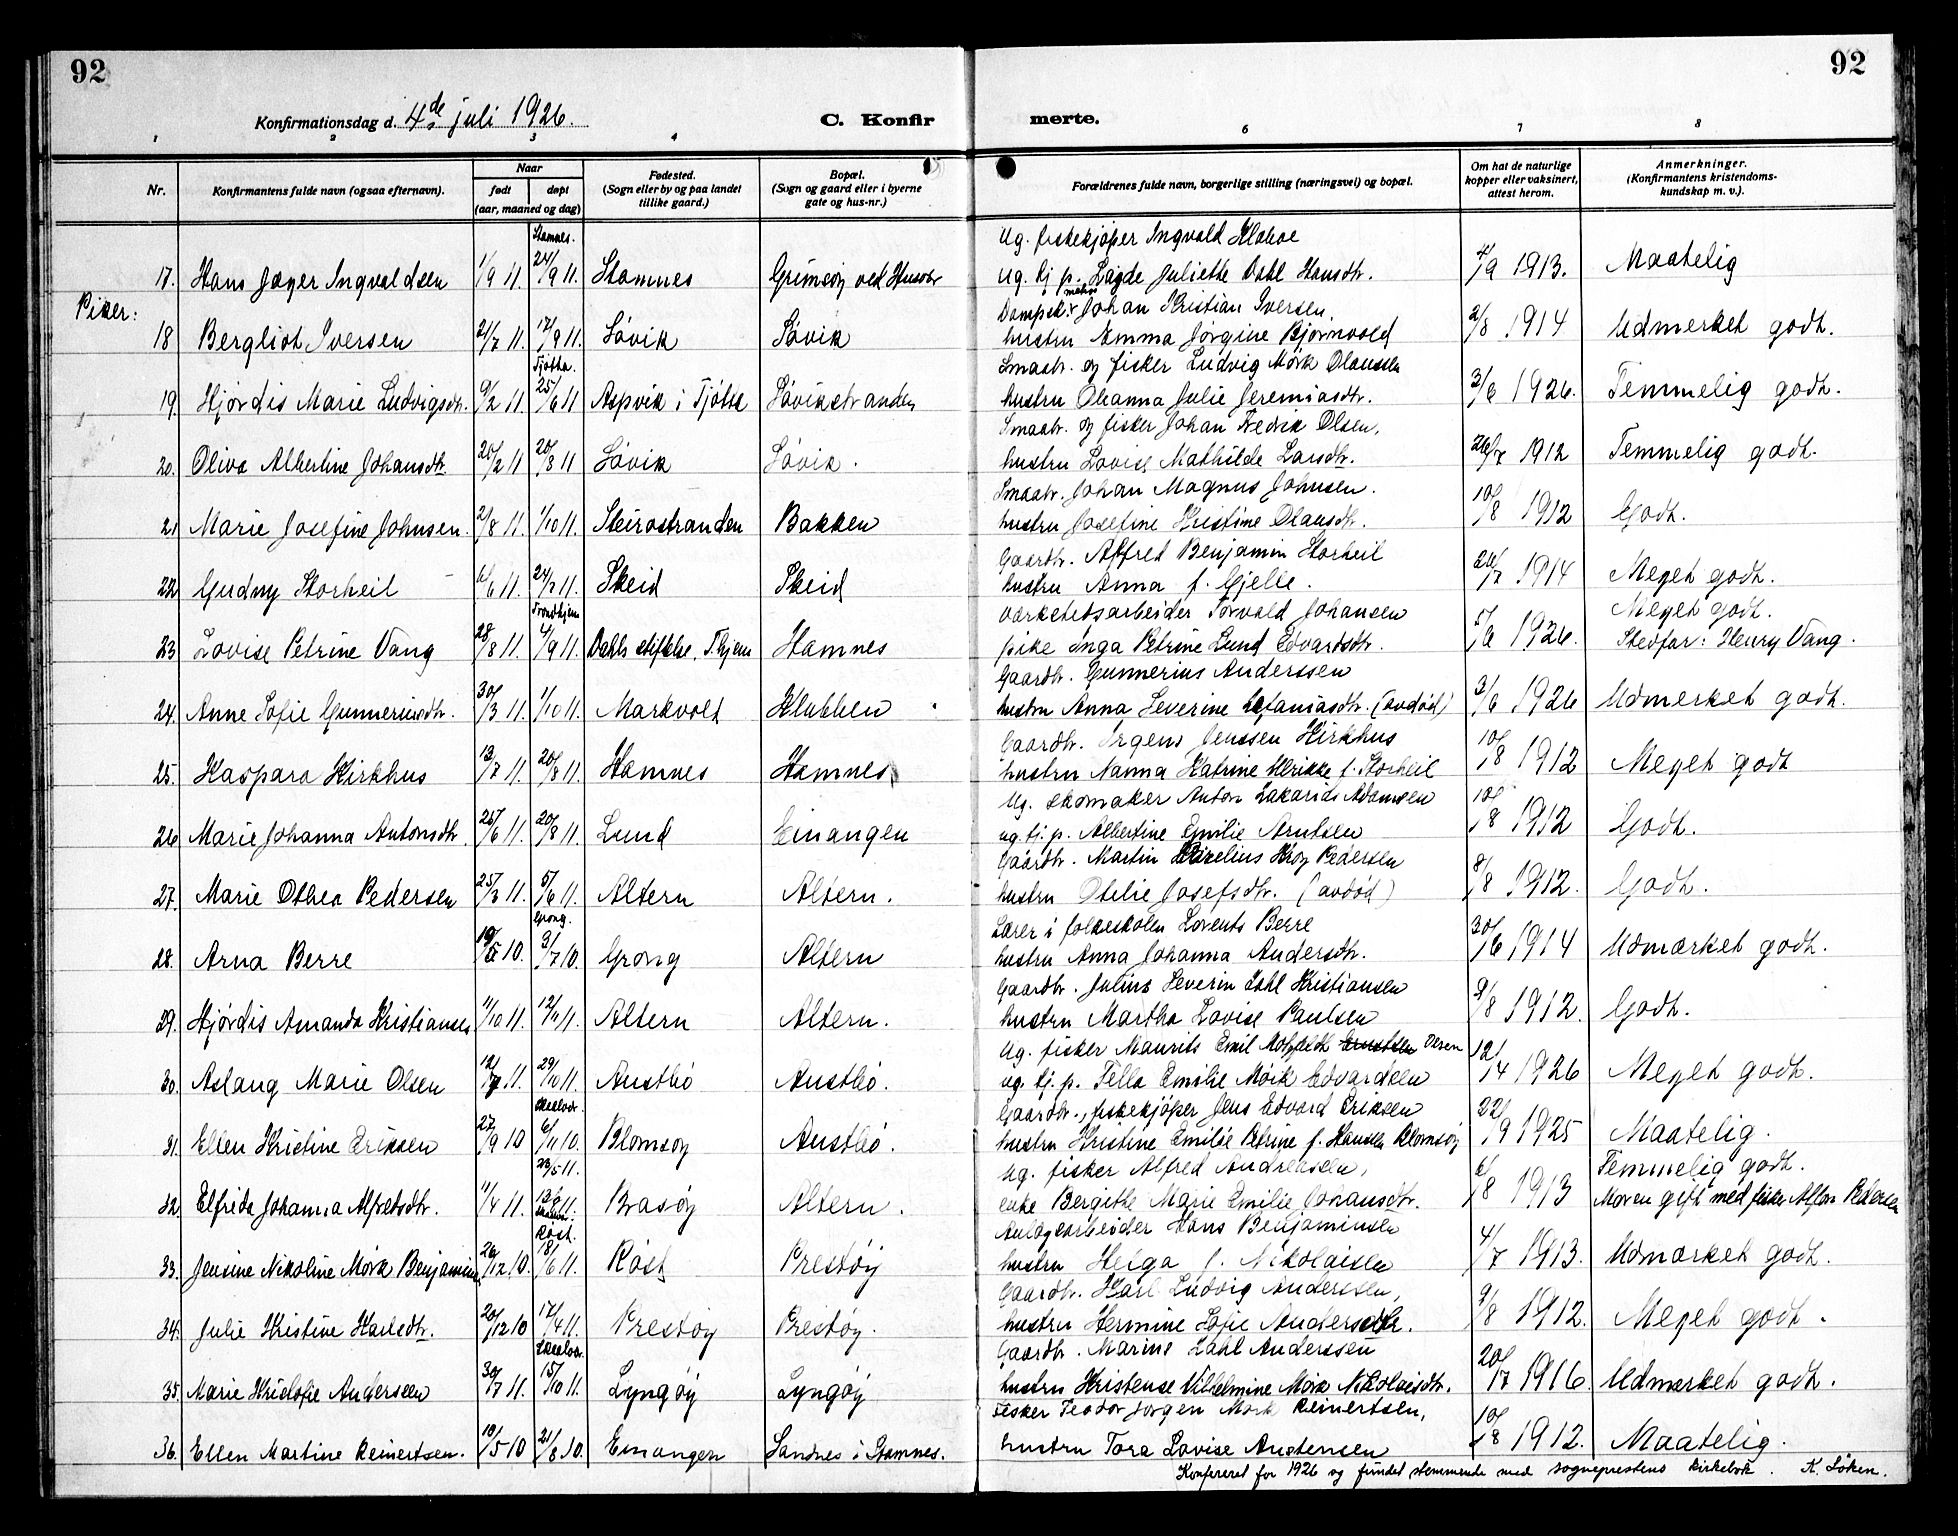 92
92
Konfirmationsdag d. 4de juli 1926.
C. Konfirmerte.
1 2 3 4 6 7 8
Nr. Konfirmantens fulde navn (ogsaa efternavn). Naar født døpt (aar, maaned og dag) Fødested. (Sogn eller by og paa landet tillike gaard.) Bopæl. (Sogn og gaard eller i byerne gate og hus-nr.) Forældrenes fulde navn, borgerlige stilling (næringsvei) og bopæl. Om hat de naturlige kopper eller vaksinert, attest herom. Anmerkninger. (Konfirmantens kristendoms-kundskap m. v.).
Stamnes. Ug. fiskekjøper Ingvald
17. Hans Jæger Ingvaldsen 1/9 11. 24/9 11. Stamnes Grimsøy ved Husvær Ug. tj. p. Lagde Juliette Dahl Hansdtr. 4/9 1913. Maatelig
Piker:
Johan Kristian Iversen.
18 Bergliot Iversen 21/7 11. 17/9 11. Søvik Søvik hustru Emma Jørgine Bjørnvold 2/8 1914 Udmerket godt.
Tjøtta. Smaabr. og fisker Ludvig Mørk Olaussen
19. Hjørdis Marie Ludvigsdtr. 9/2 11. 25/6 11 Aspvik i Tjøtta Søvikstranden hustru Ohanna Julie Jeremiasdtr. 3/6 1926. Temmelig godt.
Smaabr. og fisker Johan Fredrik Olsen,
20. Oliva Albertine Johansdtr. 25/2 11 20/8 11 Søvik Søvik. hustru Lovise Mathilde Larsdtr. 26/7 1912 Temmelig godt.
Smaabr. Johan Magnus Johnsen.
21 Marie Josefine Johnsen. 2/8 11. 1/10 11. Steirostranden Bakken hustru Josefine Kristine Olausdtr. 10/8 1912 Godt.
Gaardbr. Alfred Benjamin Storheil
22 Gudny Storheil 6/6 11. 24/7 11. Skeid Skeid hustru Anna f. Gjelle. 26/7 1914 Meget godt.
Trondhjem Værkstedsarbeider Torvald Johansen Meget godt.
23 Lovise Petrine Vang 28/8 11. 4/9 11. Dahls stiftelse, T.hjem Hamnes pike Inga Petrine Lund Edvardsdtr. 5/6 1926. Stedfar: Henry Vang.
Gaardbr. Gunnerius Anderssen
24. Anne Sofie Gunneriusdtr. 30/3 11. 1/10 11. Markvoll Klubben hustru Anna Severine Zefaniasdtr. (avdød) 3/6 1926 Udmerket godt.
Gaardbr. Jrgens Jenssen Kirkhus
25. Kaspara Kirkhus 13/7 11. 20/8 11. Hamnes Hamnes hustru Nanna Katrine Ulrikke f. Storheil 10/8 1912 Meget godt
Ug. skomaker Anton Zakarias Adamsen
26 Marie Johanna Antonsdtr. 25/6 11. 20/8 11. Lund Einangen ug. tj. p. Albertine Emilie Arntsen 10/8 1912 Godt.
Gaardbr. Martin Krog Pedersen
27. Marie Othea Pedersen 25/3 11. 5/6 11. Altern Altern. hustru Otelie Josefsdtr. (avdød) 8/8 1912. Godt.
Grong. Lærer i folkeskolen Lorents Berre
28. Arna Berre 19/5 10. 3/7 10. Grong Altern hustru Anna Johanna Andersdtr. 30/6 1914 Udmærket godt.
Gaardbr. Julius Severin Zahl Kristiansen
29. Hjørdis Amanda Kristiansen 1/10 11. 12/11 11. Altern Altern. hustru Martha Lovise Paulsen 9/8 1912. Godt.
Ug. fisker Maurits Emil Olsen
30. Aslaug Marie Olsen 12/7 11. 29/10 11. Austbø Austbø. ug. tj. p. Tella Emilie Mørk Edvardsen 12/4 1926 Meget godt.
Skaalvær. Gaardbr., fiskekjøper Jens Edvard Eriksen
31. Ellen Kristine Eriksen 27/9 10 6/11 10. Blomsøy Austbø. hustru Kristine Emilie Petrine f. Hansen Blomsøy 22/9 1925 Maatelig.
23/5 11. Ug. fisker Alfred Andreassen, Temmelig godt.
32. Elfrida Johanna Alfredsdtr. 11/4 11. Brasøy Altern. enke Bergitte Marie Emilie Johansdtr. 6/8 1913 Moren gift med fisker Alfon Pedersen
Røst. Anlægsarbeider Hans Benjaminsen
33. Jensine Nikoline Mørk Benjaminsen 26/12 10. 18/6 11. Røst Prestøy hustru Helga f. Nikolaisen 4/7 1913. Udmærket godt.
Gaardbr. Karl Ludvig Anderssen,
34. Julie Kristine Karlsdtr. 20/12 10 17/4 11. Prestøy Prestøy. hustru Hermine Sofie Andersdtr. 9/8 1912. Meget godt.
Skaalvær. Gaardbr. Marius Zahl Anderssen
35. Marie Kristofie Anderssen 30/7 11. 15/10 11. Lyngøy Lyngøy hustru Kristense Vilhelmine Mørk Nikolaisdtr. 20/7 1916. Udmærket godt.
Fisker Teodor Jørgen Mørk Reinertsen,
36. Ellen Martine Reinertsen. 19/5 10 21/8 10. Einangen Sandnes i Stamnes. hustru Tora Lovise Austensen 10/8 1912. Maatelig.
Konfereret for 1926 og fundet stemmende med sogneprestens kirkebok. K. Løken.